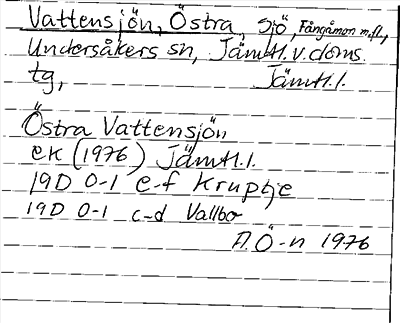 Vattensjön, Östra, sjö, Fångåmon m.fl.,
Undersåkers sn, Jämtl. v. doms.
tg, Jämtl. l.
Östra Vattensjön
ek (1976) Jämtl. l.
19D 0-1 e-f Kruptje
19D 0-1 c-d Vallbo
A.Ö-n 1976